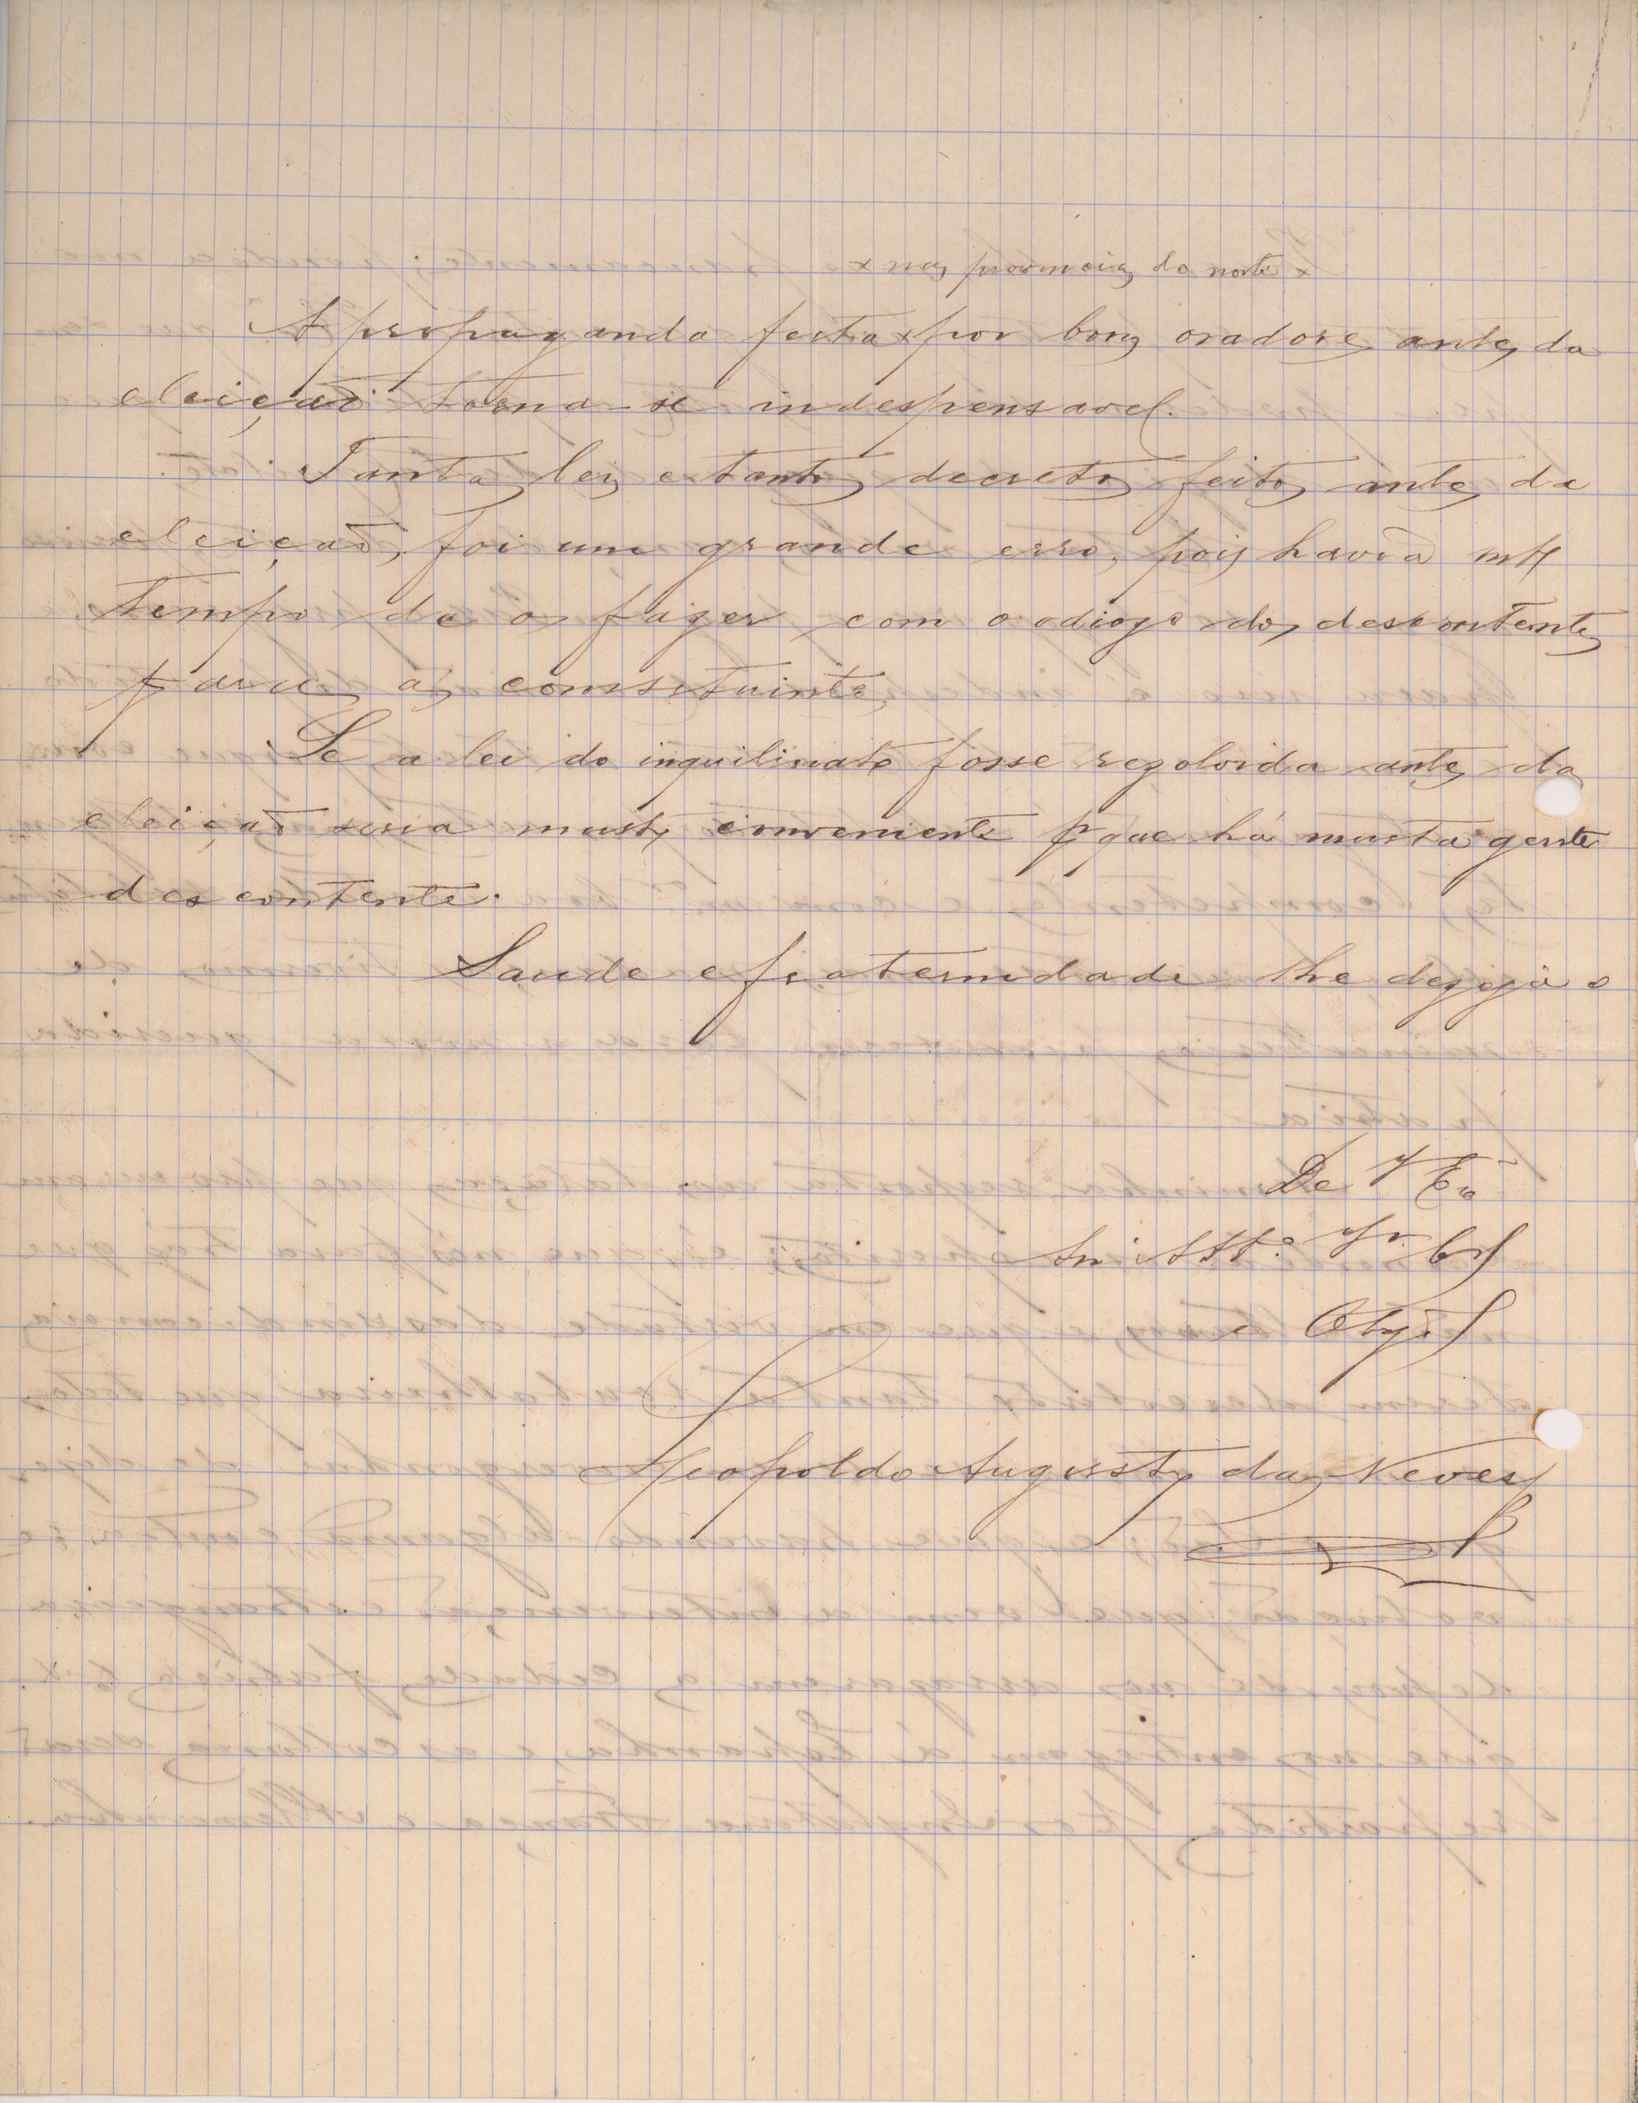 x nas provincias do norte x
A propaganda feita x por bons oradores antes da
eleição torna-se indespensavel.
Tantas leis e tantos decretos feitos antes da
eleição, foi um grande erro, pois havia mto
tempo de os fazer com o odiozo dos descontentes
para as constituintes
Se a lei do inquilinato fosse rezolvida antes da
eleição seria muito conveniente pque há muita gente
descontente.
Saude e fraternidade lhe dezeja o
De V Exa
Am Atto Vr
e Obgo
Leopoldo Augusto das Neves